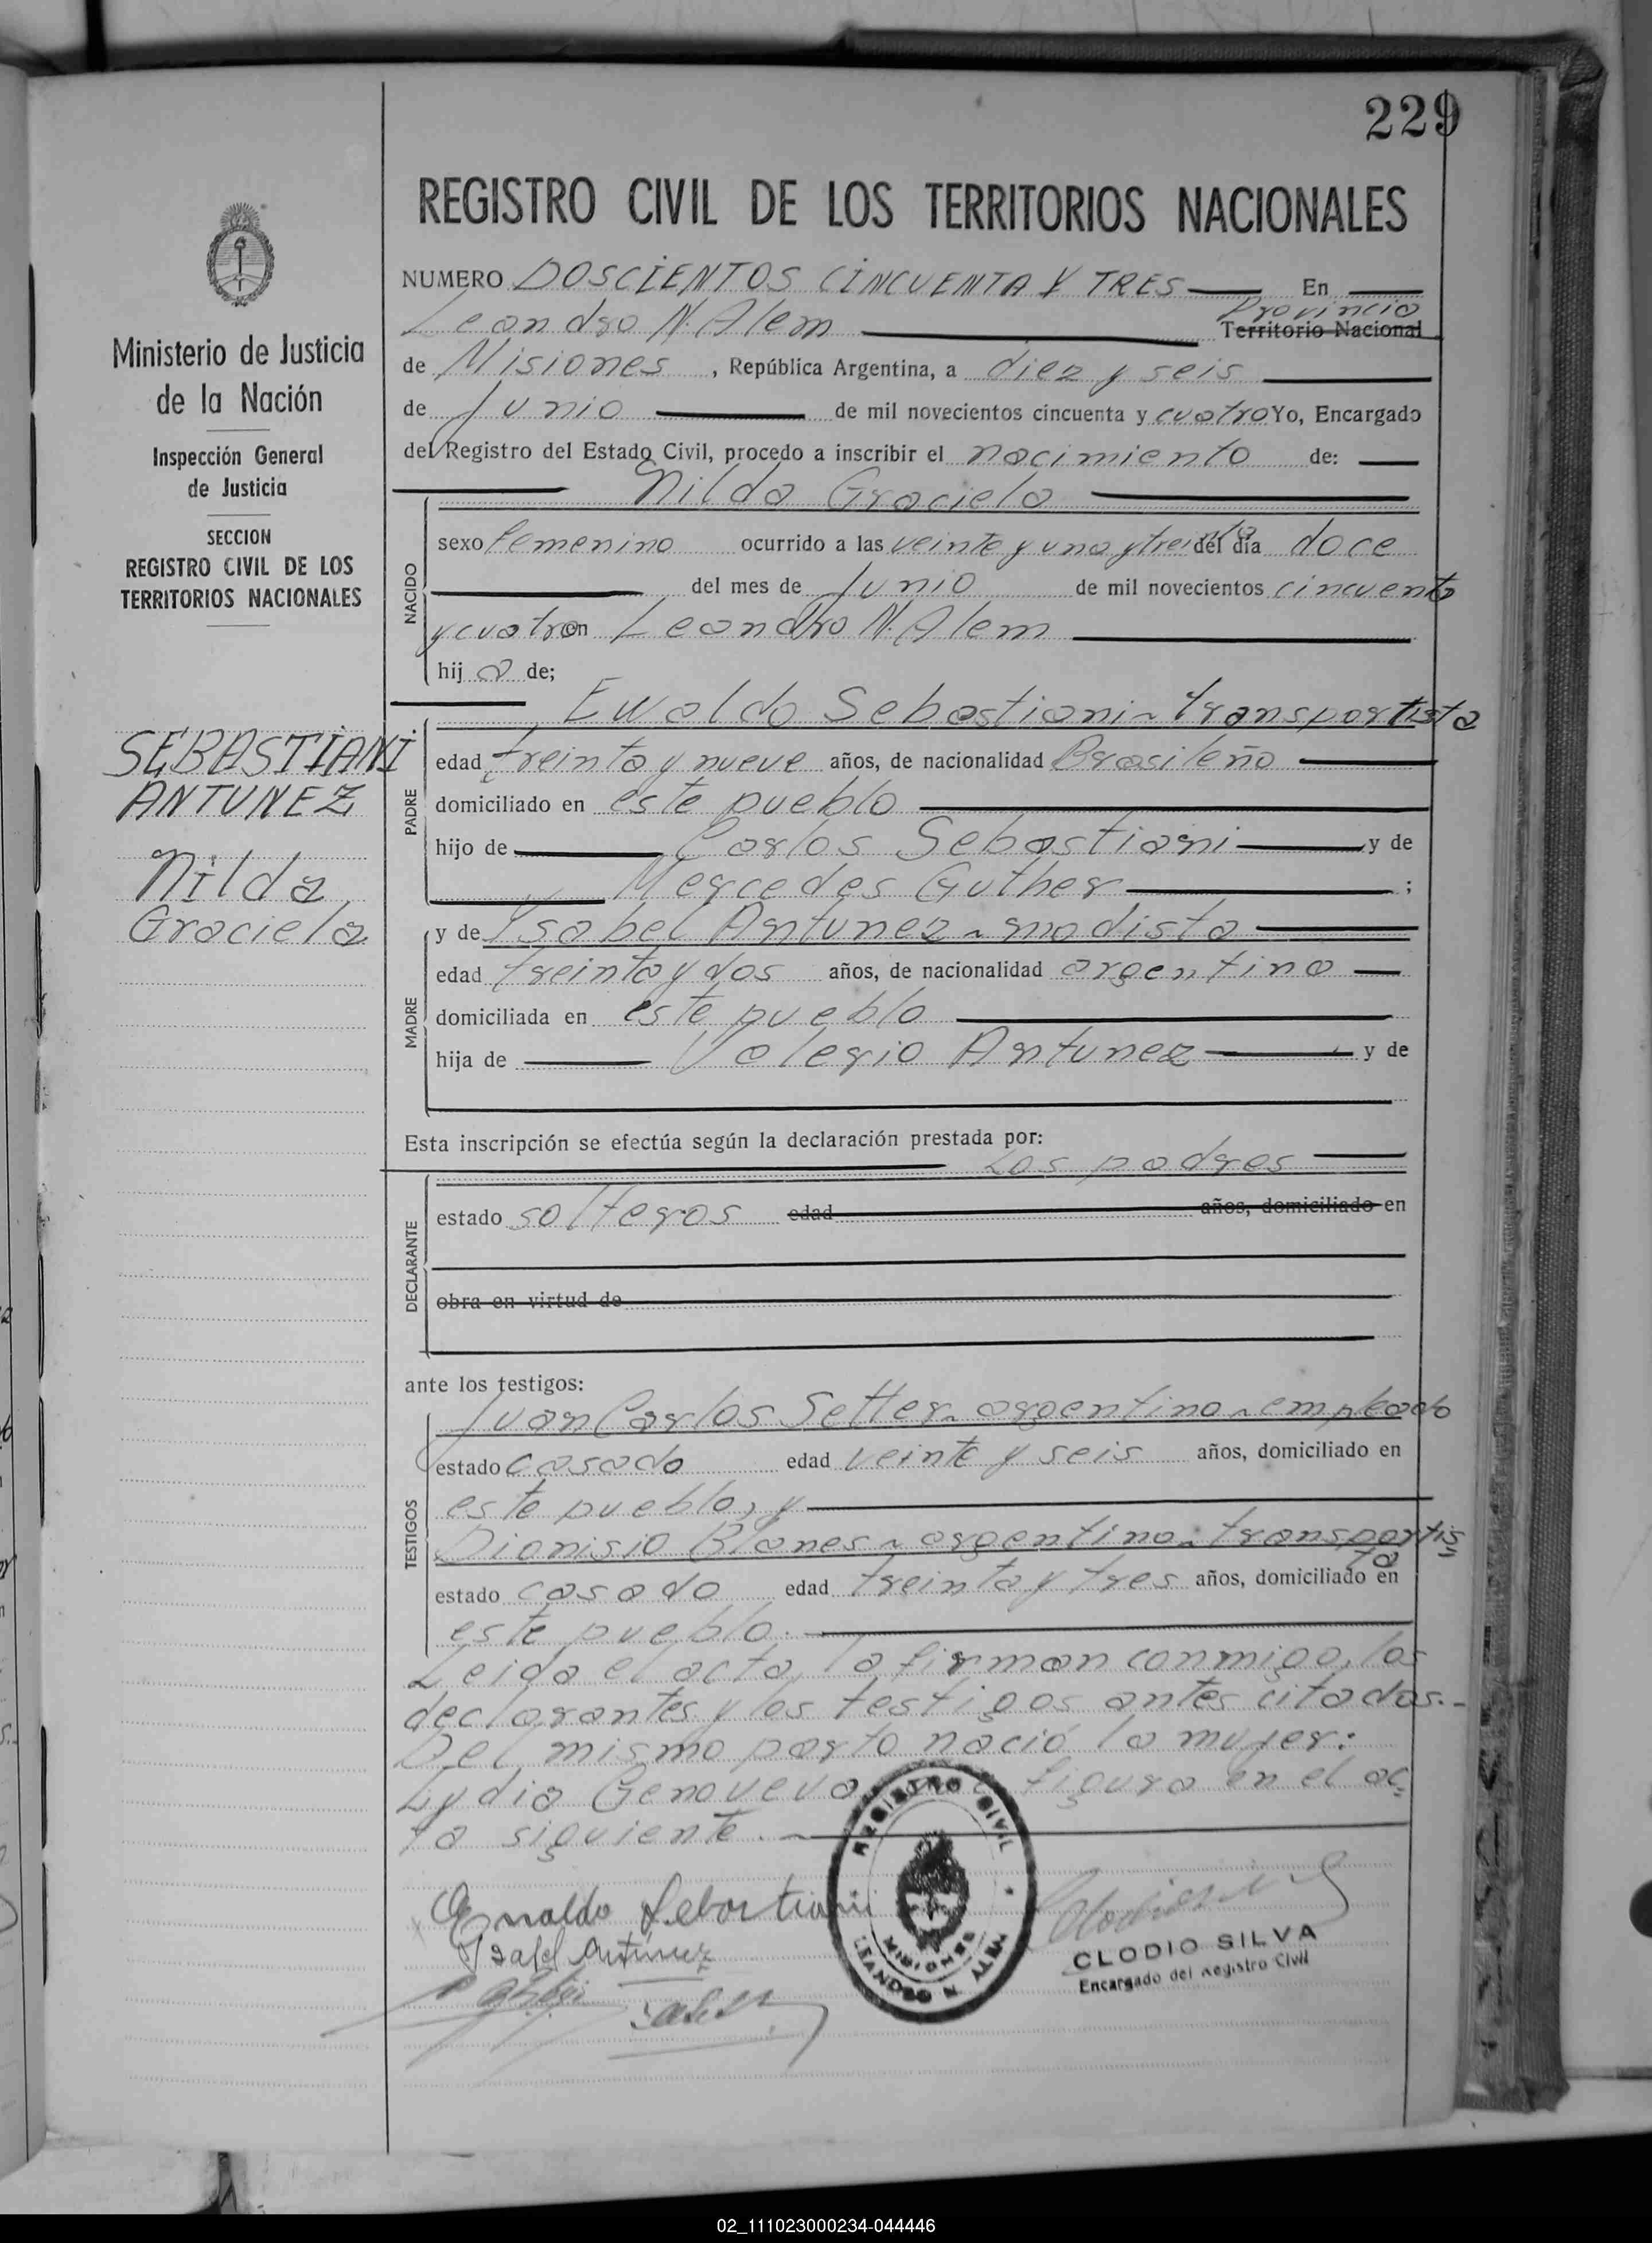 229
REGISTRO CIVIL DE LOS TERRITORIOS NACIONALES
Ministerio de Justicia
de la Nación
Inspección General
de Justicia
SECCION
REGISTRO CIVIL DE LOS
TERRITORIOS NACIONALES
SEBASTIANI
ANTUNEZ
Nilda
Graciela
NUMERO DOSCIENTOS CINCUENTA Y TRES En
Leandro N. Alem Provincia Territorio Nacional
de Misiones, República Argentina, a diez y seis
de Junio de mil novecientos cincuenta y cuatro Yo, Encargado
del Registro del Estado Civil, procedo a inscribir el nacimiento de:
Nilda Graciela
NACIDO
sexo femenino ocurrido a las veinte y una y treinta del día doce
del mes de Junio de mil novecientos cincuenta
y cuatro en Leandro N. Alem
hija de;
Ewaldo Sebastiani - transportista
PADRE
edad treinta y nueve años, de nacionalidad Brasileño
domiciliado en este pueblo
hijo de Carlos Sebastiani y de
Mercedes Guther;
y de Ysabel Antunez - modista
MADRE
edad treinta y dos años, de nacionalidad argentina
domiciliada en este pueblo
hija de Valerio Antunez y de
Esta inscripción se efectúa según la declaración prestada por:
Los padres
DECLARANTE
estado solteros edad años, domiciliado en
obra en virtud de
ante los testigos:
TESTIGOS
Juan Carlos Setter - argentino - empleado
estado casado edad veinte y seis años, domiciliado en
este pueblo, y
Dionisio Blanes - argentino - transportis=
ta
estado casado edad treinta y tres años, domiciliado en
este pueblo.
Leida el acta, la firman conmigo, los
declarantes y los testigos antes citados.-
Del mismo parto nació la mujer:
Lydia Genoveva figura en el ac-
ta siguiente.-
REGISTRO CIVIL
MISIONES
LEANDRO N. ALEM
Ewaldo Sebastiani
Isabel Antúnez
CLODIO SILVA
Encargado del Registro Civil
02_111023000234-044446